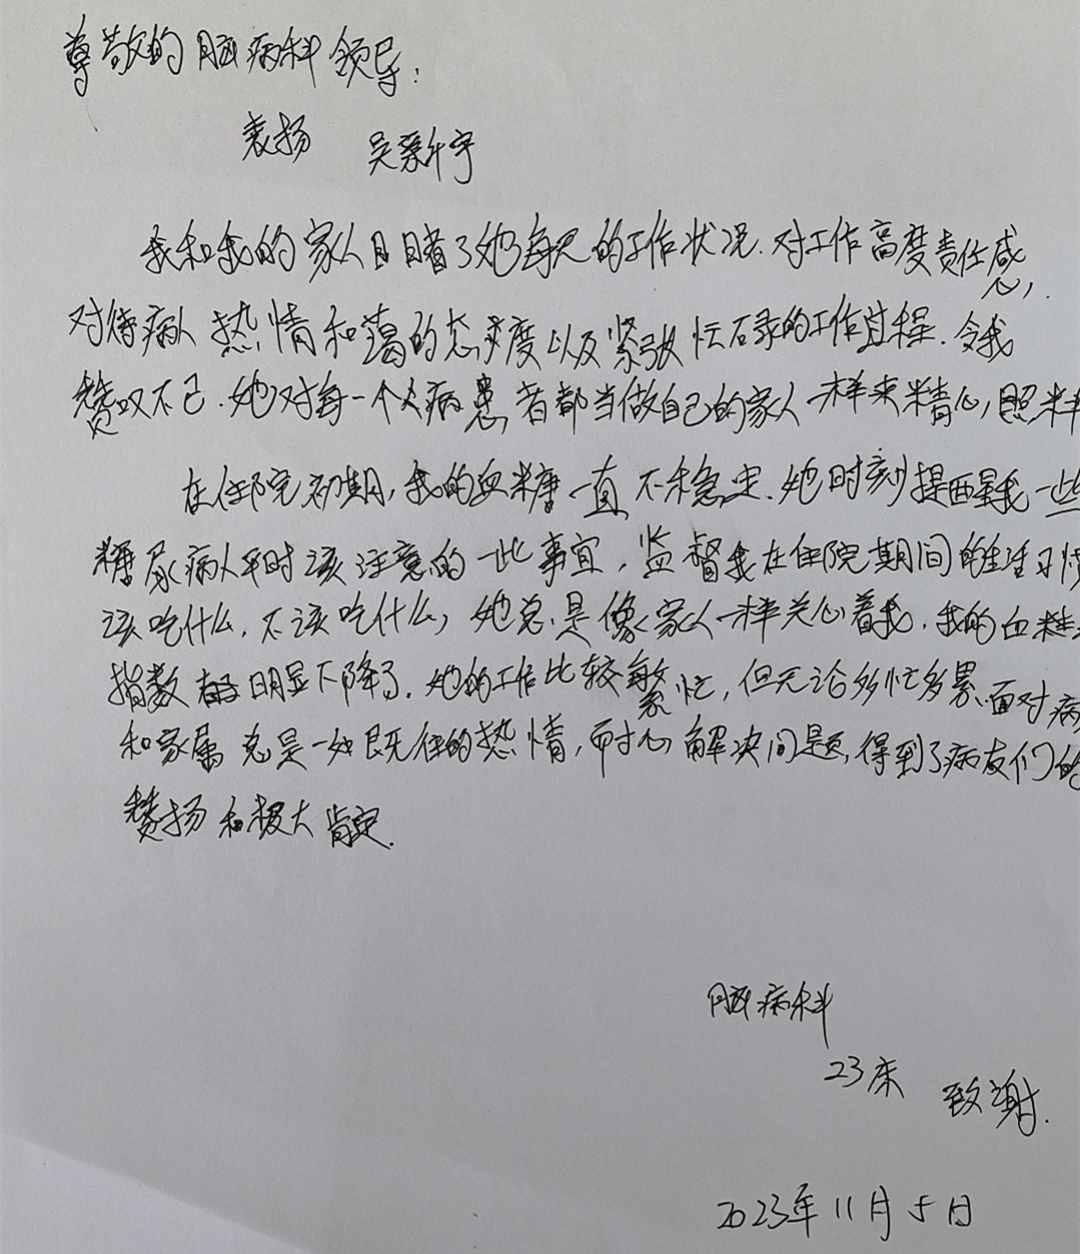 尊敬的脑病科领导：
表扬 吴
我和我的家人目睹了她每天的工作状况.对工作高度责任感
心,.
对待病人热情和蔼的态度以及紧张忙碌的工作过程.令我
赞叹不已.她对每一个病患者都当做自己的家人一样来精心,照料
在住院初期,我的血糖一直不稳定.她时刻提醒我一些
糖尿病人平时该注意的一些事宜,监督我在住院期间的生活习惯
该吃什么.不该吃什么,她总是像家人一样关心着我.我的血糖
指数 明显下降了.她的工作比较繁忙,但无论多忙多累.面对病
和家属总是一如既往的热情,耐心解决问题,得到了病友们的
赞扬和极大肯定.
脑病科
23床 致谢.
2023年11月5日